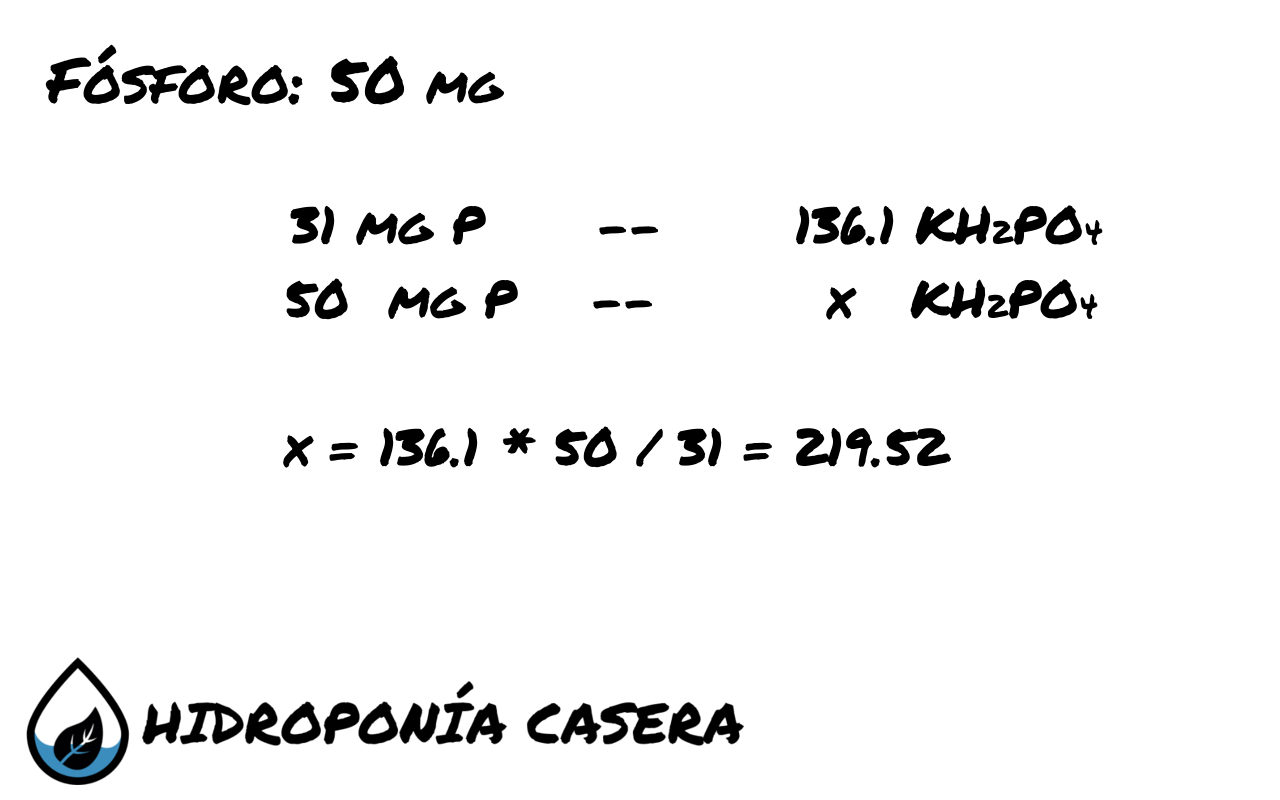 Fósforo: 50 mg
31 mg P -- 136.1 KH2PO4
50 mg P -- x KH2PO4
x = 136.1 * 50 / 31 = 219.52
HIDROPONÍA CASERA